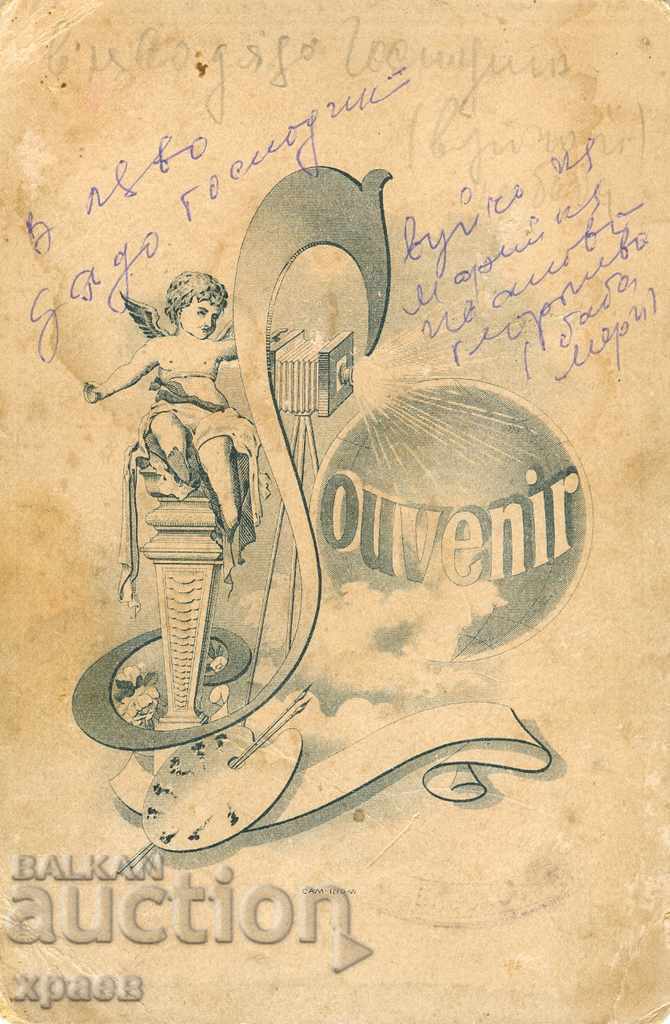 в ляво дядо Господин
в ляво
дядо Господин
вуйчо на
Марийка
Иванова
Георгиева
(баба
Мери)
Souvenir
BALKAN
auction
храев